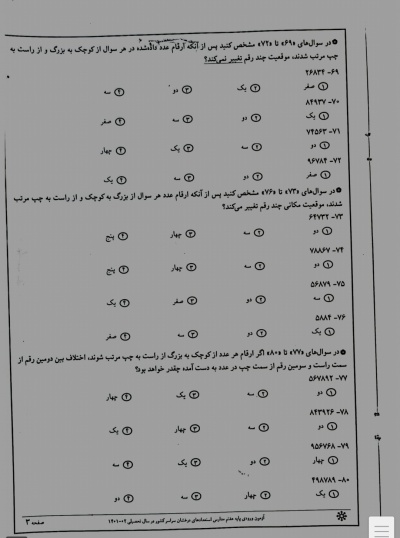 ● در سوال‌های «۶۹» تا «۷۲» مشخص کنید پس از آنکه ارقام عدد داده‌شده در هر سوال از کوچک به بزرگ و از راست به
چپ مرتب شدند، موقعیت چند رقم تغییر نمی‌کند؟
۶۹- ۲۶۸۳۴
۱) صفر ۲) یک ۳) دو ۴) سه
۷۰- ۸۴۹۳۷
۱) یک ۲) دو ۳) سه ۴) صفر
۷۱- ۷۴۵۶۳
۱) دو ۲) سه ۳) یک ۴) چهار
۷۲- ۹۶۷۸۴
۱) صفر ۲) دو ۳) سه ۴) یک
● در سوال‌های «۷۳» تا «۷۶» مشخص کنید پس از آنکه ارقام عدد هر سوال از بزرگ به کوچک و از راست به چپ مرتب
شدند، موقعیت مکانی چند رقم تغییر می‌کند؟
۷۳- ۶۴۷۳۲
۱) دو ۲) سه ۳) چهار ۴) پنج
۷۴- ۷۸۸۶۷
۱) دو ۲) سه ۳) چهار ۴) پنج
۷۵- ۵۶۸۷۹
۱) سه ۲) دو ۳) صفر ۴) یک
۷۶- ۵۸۸۴
۱) یک ۲) دو ۳) سه ۴) صفر
● در سوال‌های «۷۷» تا «۸۰» اگر ارقام هر عدد از کوچک به بزرگ از راست به چپ مرتب شوند، اختلاف بین دومین رقم از
سمت راست و سومین رقم از سمت چپ در عدد به دست آمده چقدر خواهد بود؟
۷۷- ۵۶۷۸۹۲
۱) دو ۲) سه ۳) یک ۴) چهار
۷۸- ۸۴۳۹۲۶
۱) دو ۲) سه ۳) چهار ۴) یک
۷۹- ۹۵۶۷۶۸
۱) چهار ۲) دو ۳) یک ۴) سه
۸۰- ۴۹۸۷۸۹
۱) یک ۲) چهار ۳) سه ۴) دو
آزمون ورودی پایه هفتم مدارس استعدادهای درخشان سراسر کشور در سال تحصیلی ۰۲-۱۴۰۱
صفحه ۳